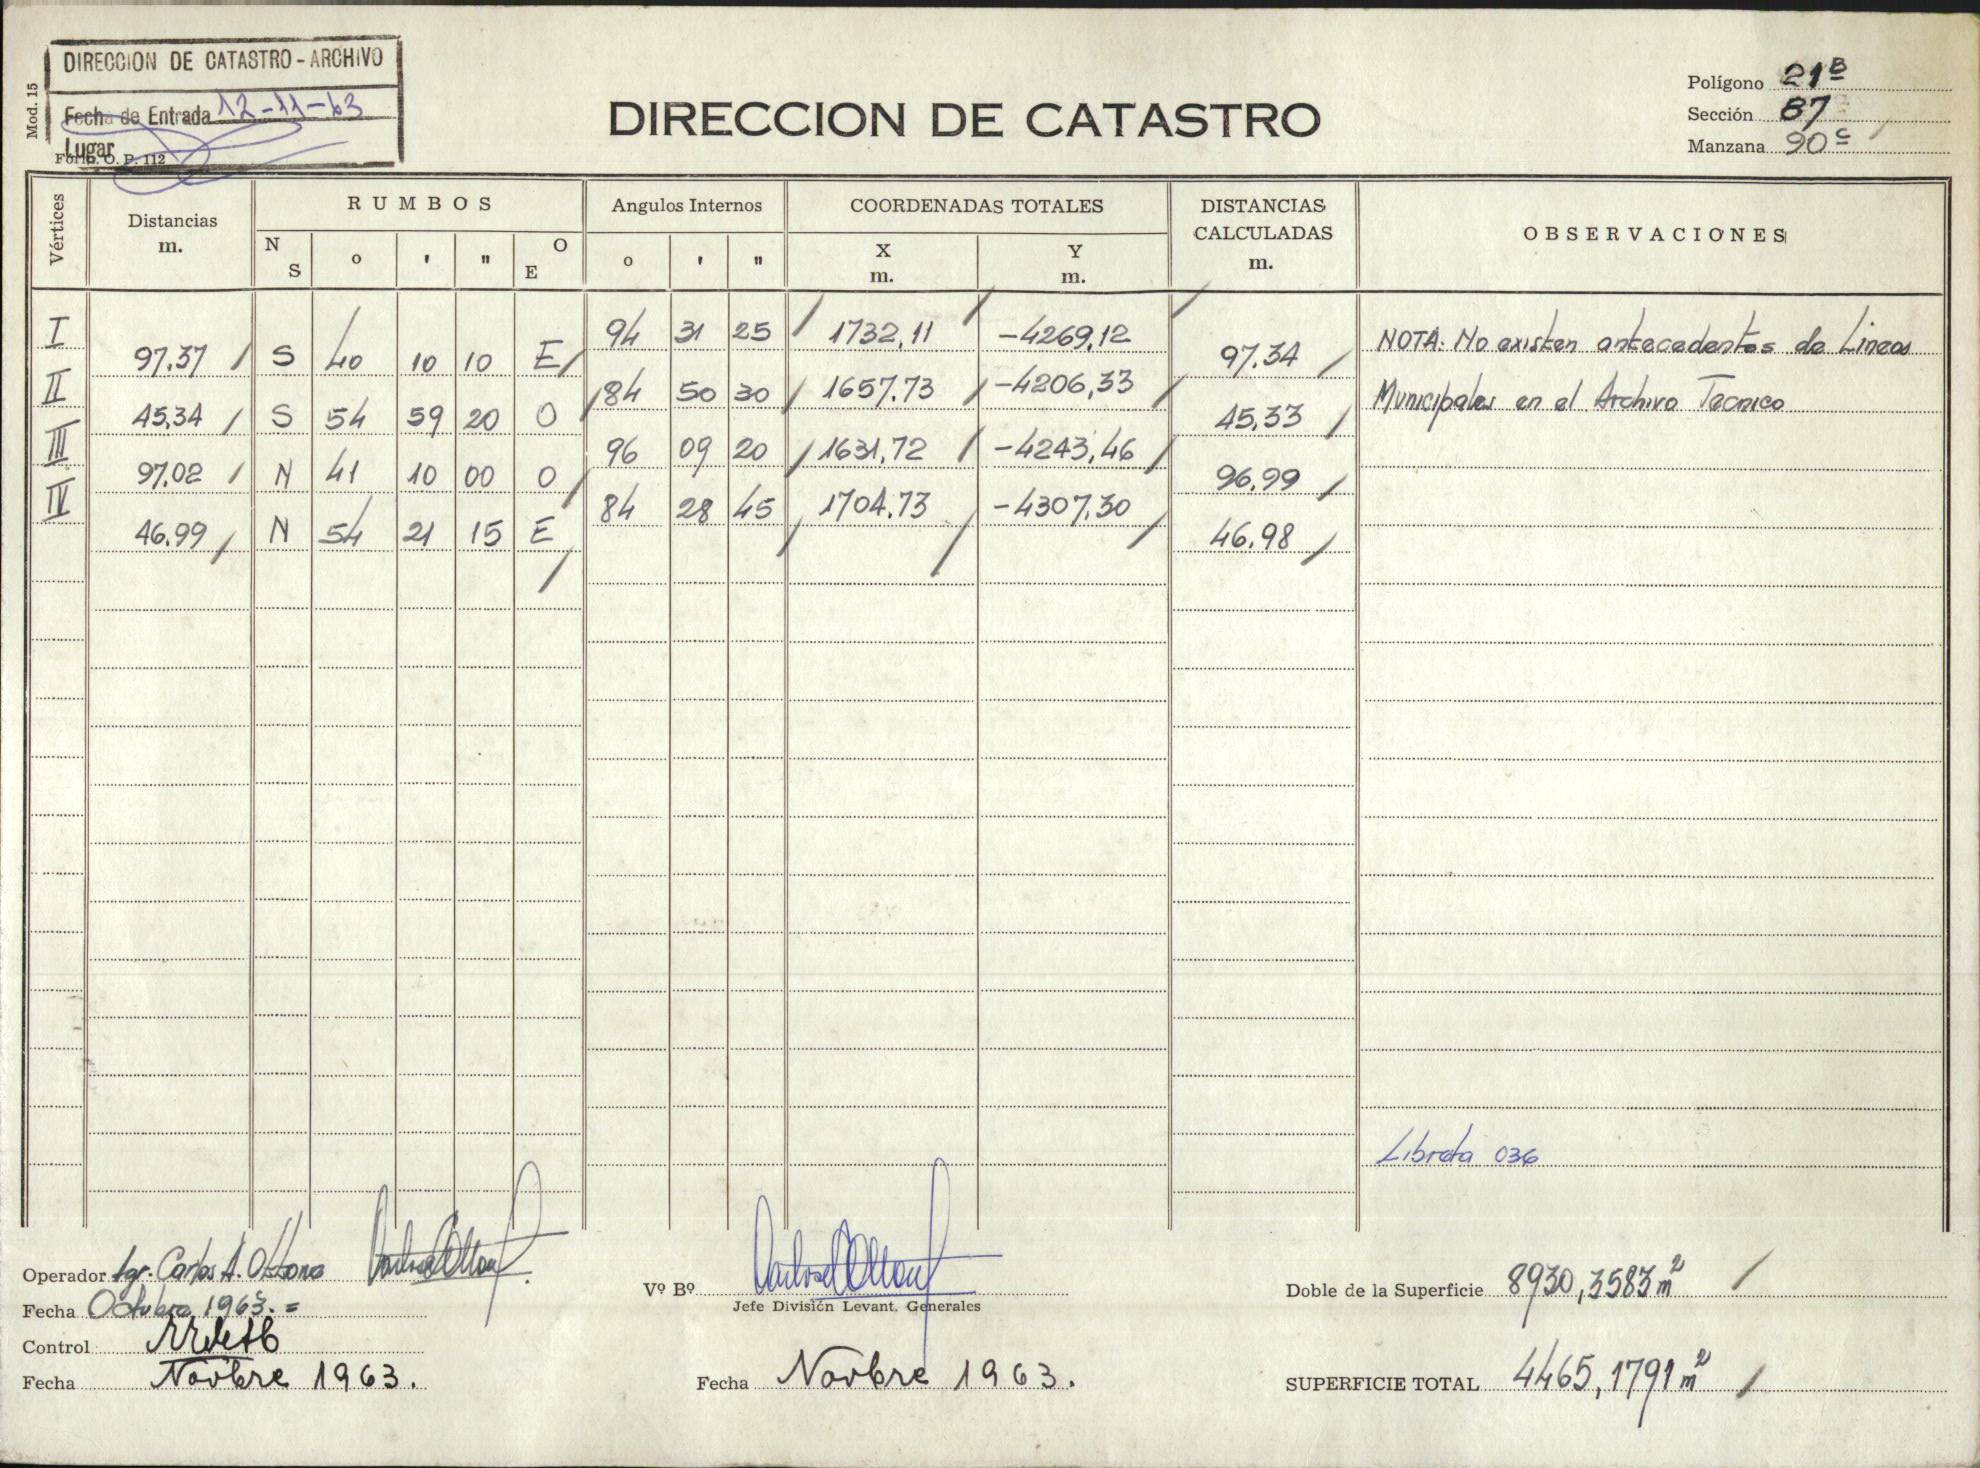 DIRECCION DE CATASTRO - ARCHIVO
Fecha de Entrada 12-11-63
Lugar
Mod. 15
Form. O. P. 112
DIRECCION DE CATASTRO
Polígono 21 B
Sección 87
Manzana 90 c
Vértices
Distancias
m.
RUMBOS
N S ° ' " O E
Angulos Internos
° ' "
COORDENADAS TOTALES
X
m.
Y
m.
DISTANCIAS
CALCULADAS
m.
OBSERVACIONES
I 94 31 25 1732,11 -4269,12
97.37 S 40 10 10 E 97.34
NOTA: No existen antecedentes de Lineas
II 84 50 30 1657.73 -4206,33
45,34 S 54 59 20 O 45,33
Municipales en el Archivo Tecnico
III 96 09 20 1631,72 -4243,46
97.02 N 41 10 00 O 96,99
IV 84 28 45 1704.73 -4307,30
46.99 N 54 21 15 E 46.98
Libreta 036
Operador Igr. Carlos A.
Fecha Octubre 1963. =
Control
Fecha Novbre 1963.
Vº Bº
Jefe División Levant. Generales
Fecha Novbre 1963.
Doble de la Superficie 8930,3583 m²
SUPERFICIE TOTAL 4465,1791 m²